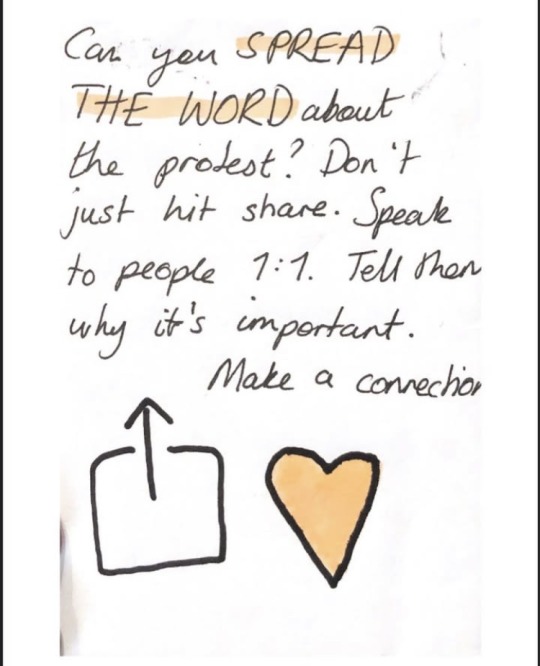 Can you SPREAD
THE WORD about
the protest? Don't
just hit share. Speak
to people 1:1. Tell them
why it's important.
Make a connection